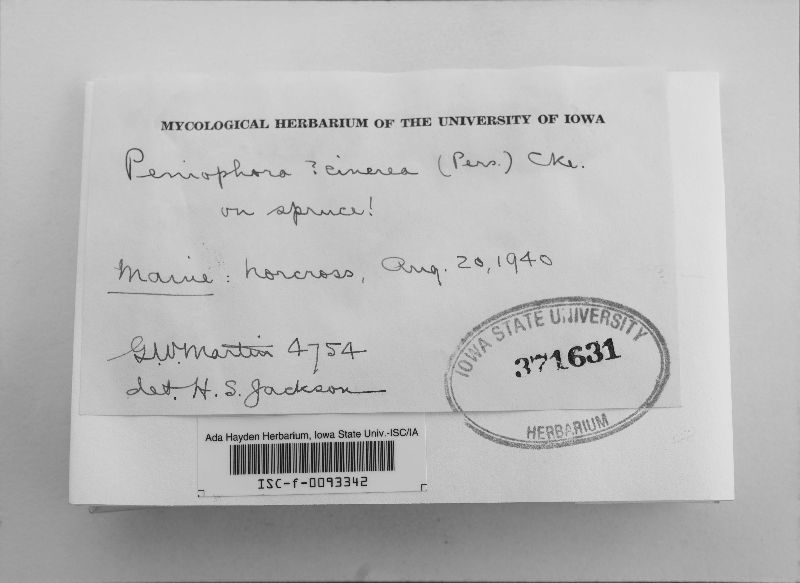 MYCOLOGICAL HERBARIUM OF THE UNIVERSITY OF IOWA
Peniophora ? cinerea (Pers.) Cke.
on spruce!
Maine: Norcross, Aug. 20, 1940
G.W. Martin 4754
det. H. S. Jackson
IOWA STATE UNIVERSITY
371631
HERBARIUM
Ada Hayden Herbarium, Iowa State Univ.-ISC/IA
ISC-f-0093342